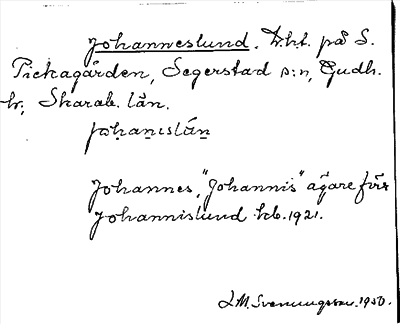 Johanneslund. Lht. på S.
Pickagården, Segerstad s:n, Gudh.
hr, Skarab. län.
johanıslán
Johannes, "Johannis" ägare förr
Johannislund heb. 1921.
L.M. Svenungsson. 1950.